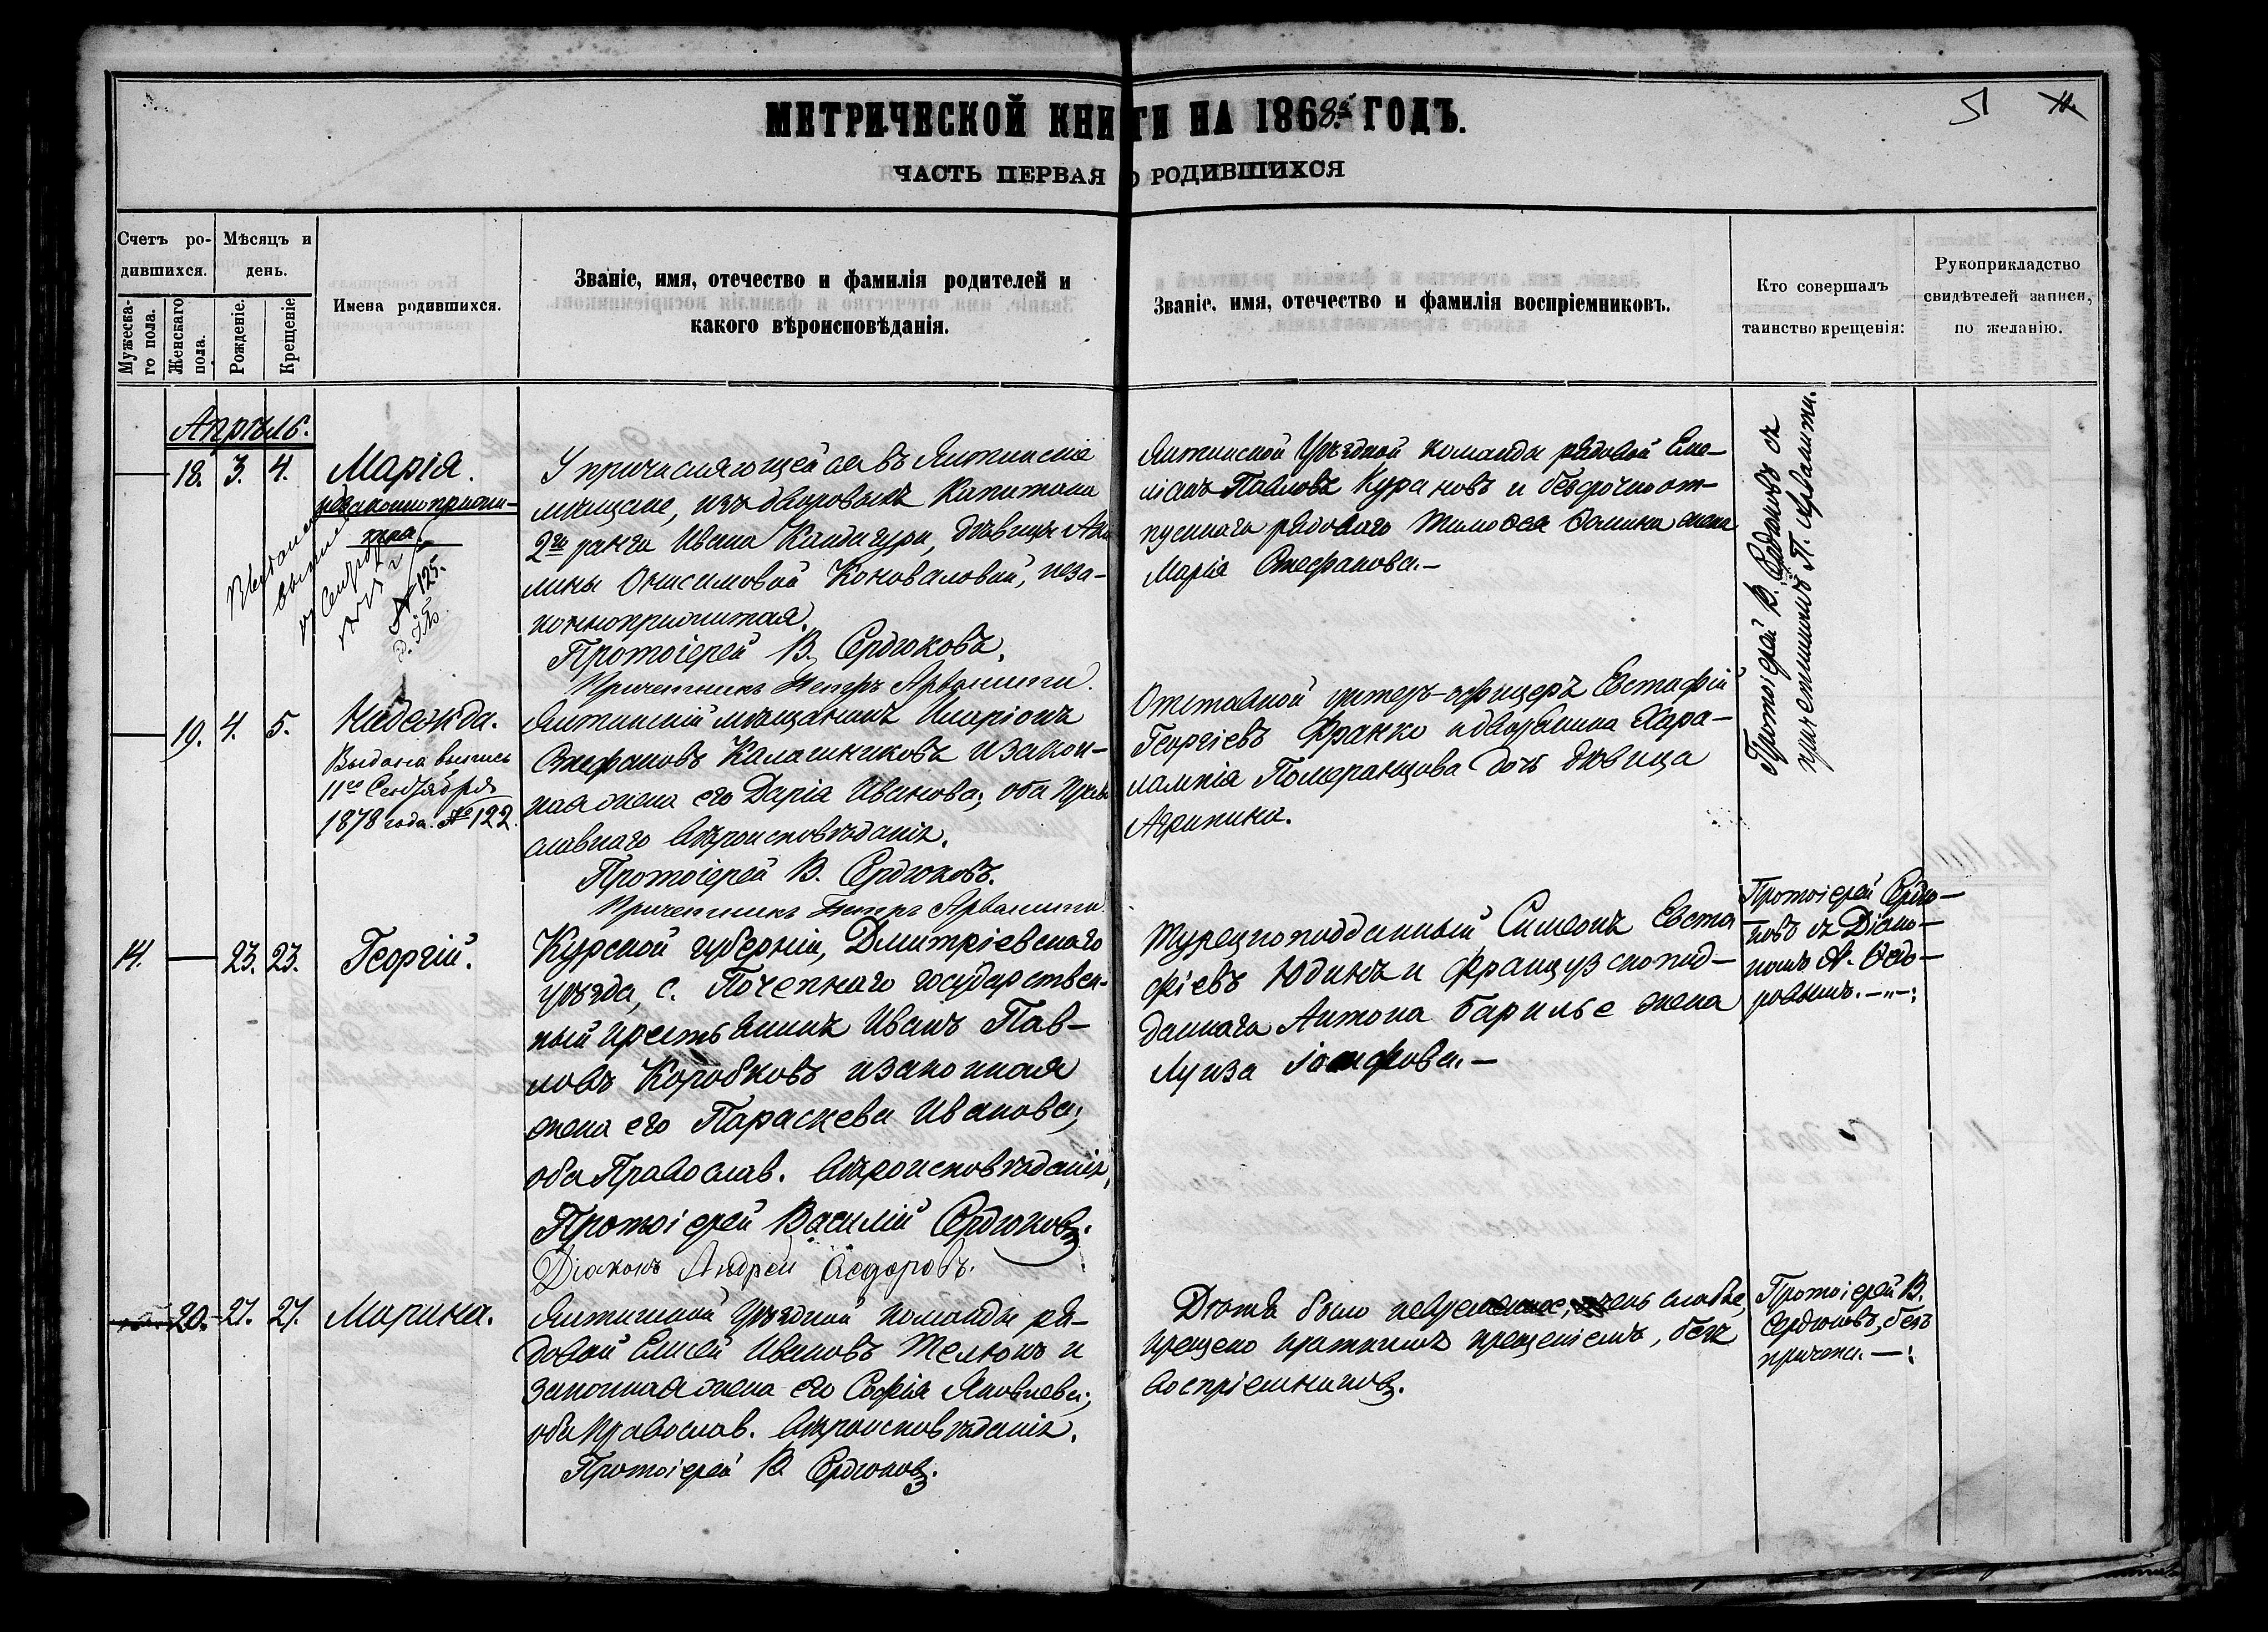 МЕТРИЧЕСКОЙ КНИГИ НА 1868й ГОДЪ.
51
ЧАСТЬ ПЕРВАЯ О РОДИВШИХСЯ
Счетъ ро-
дившихся.
Мужеска-
го пола.
Женскаго
пола.
Мѣсяцъ и
день.
Рожденіе.
Крещеніе
Имена родившихся.
Званіе, имя, отечество и фамилія родителей и
какого вѣроисповѣданія.
Званіе, имя, отечество и фамилія воспріемниковъ.
Кто совершалъ
таинство крещенія:
Рукоприкладство
свидѣтелей записи,
по желанію.
Апрѣль.
18. 3. 4.
Марія.
незаконноприжи-
№ 125.
У причисляющейся въ Ялтинскіе
мѣщане, изъ дворовыхъ Капитана
2го ранга Ивана Кандагури, дѣвицы
лины Онисимовой Коноваловой, неза-
конноприжитая.
Протоіерей В. Сердюковъ.
Причетникъ Петръ Арванити.
Ялтинской Уѣздной команды рядовой Еме-
ліанъ Павловъ Курановъ и безсрочноот-
пускнаго рядоваго Тимоѳея жена
Марія Стефанова.—
Протоіерей В. Сердюковъ съ
причетникомъ П. Арванити.
19. 4. 5.
Надежда.
Выдана выпись
11го Сентября
1878 года. № 122.
Ялтинскій мѣщанинъ Иларіонъ
Стефановъ Калашниковъ и закон-
ная жена его Дарія Иванова; оба Право
славнаго вѣроисповѣданія.
Протоіерей В. Сердюковъ.
Причетникъ Петръ Арванити.
Отставной унтеръ-офицеръ Евстафій
Георгіевъ Франко и дворянина Хара-
лампія Померанцова дочь дѣвица
Агрипина.
14. 23. 23.
Георгій.
Курской губерніи, Дмитріевскаго
уѣзда, с. Почепнаго государствен-
ный крестьянинъ Иванъ Пав-
ловъ Коробковъ и законная
жена его Параскева Иванова;
оба Православ. вѣроисповѣданія,
Протоіерей Василій Сердюковъ.
Діаконъ Андрей Ѳедоровъ.
Турецкоподданный Симеонъ Евста
фіевъ Юдинъ и французскопод-
даннаго Антона Барилье жена
Луиза Іосифова.—
Протоіерей Сердю-
ковъ съ Діако-
номъ А. Ѳедо-
ровымъ.—"—:
20. 27. 27.
Марина.
Ялтинской Уѣздной команды ря-
довой Елисей Ивановъ Телюкъ и
законная жена его Софія Яковлева;
оба Православ. вѣроисповѣданія.
Протоіерей В. Сердюковъ.
Дѣтя было очень слабое,
крещено краткимъ крещеніемъ, безъ
воспріемниковъ.
Протоіерей В.
Сердюковъ, безъ
причта.—: